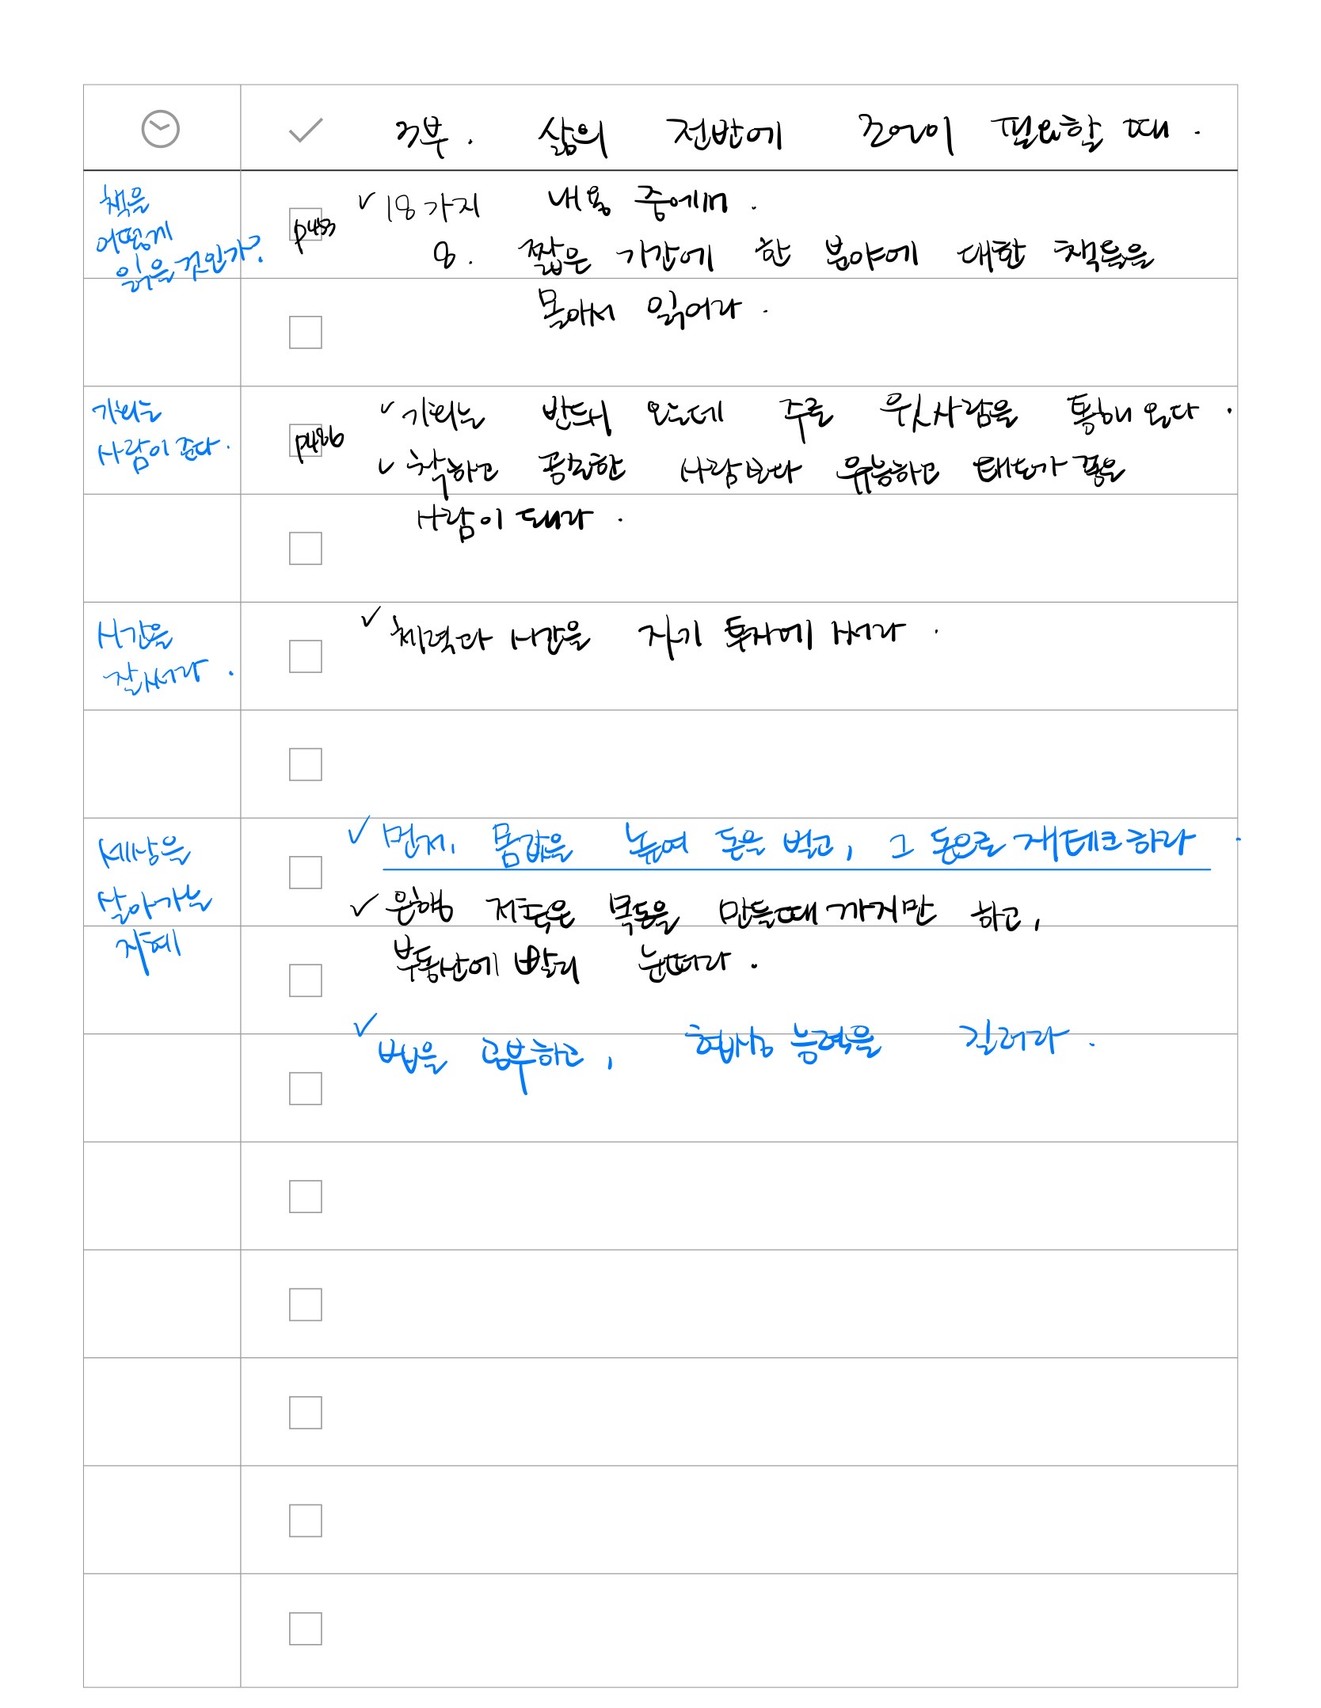 3부. 삶의 전반에 조언이 필요할 때.
책을
어떻게
읽을 것인가?
p483
✓ 18가지 내용 중에서.
8. 짧은 기간에 한 분야에 대한 책들을
몰아서 읽어라.
기회는
사람이 준다.
p486
✓ 기회는 반드시 오는데 주로 윗사람을 통해 온다.
✓ 착하고 공손한 사람보다 유능하고 태도가 좋은
사람이 돼라.
시간을
잘 써라.
✓ 체력과 시간을 자기 투자에 써라.
세상을
살아가는
지혜
✓ 먼저, 몸값을 높여 돈을 벌고, 그 돈으로 재테크하라.
✓ 은행 저축은 목돈을 만들때 까지만 하고,
부동산에 빨리 눈떠라.
✓ 법을 공부하고, 협상 능력을 길러라.